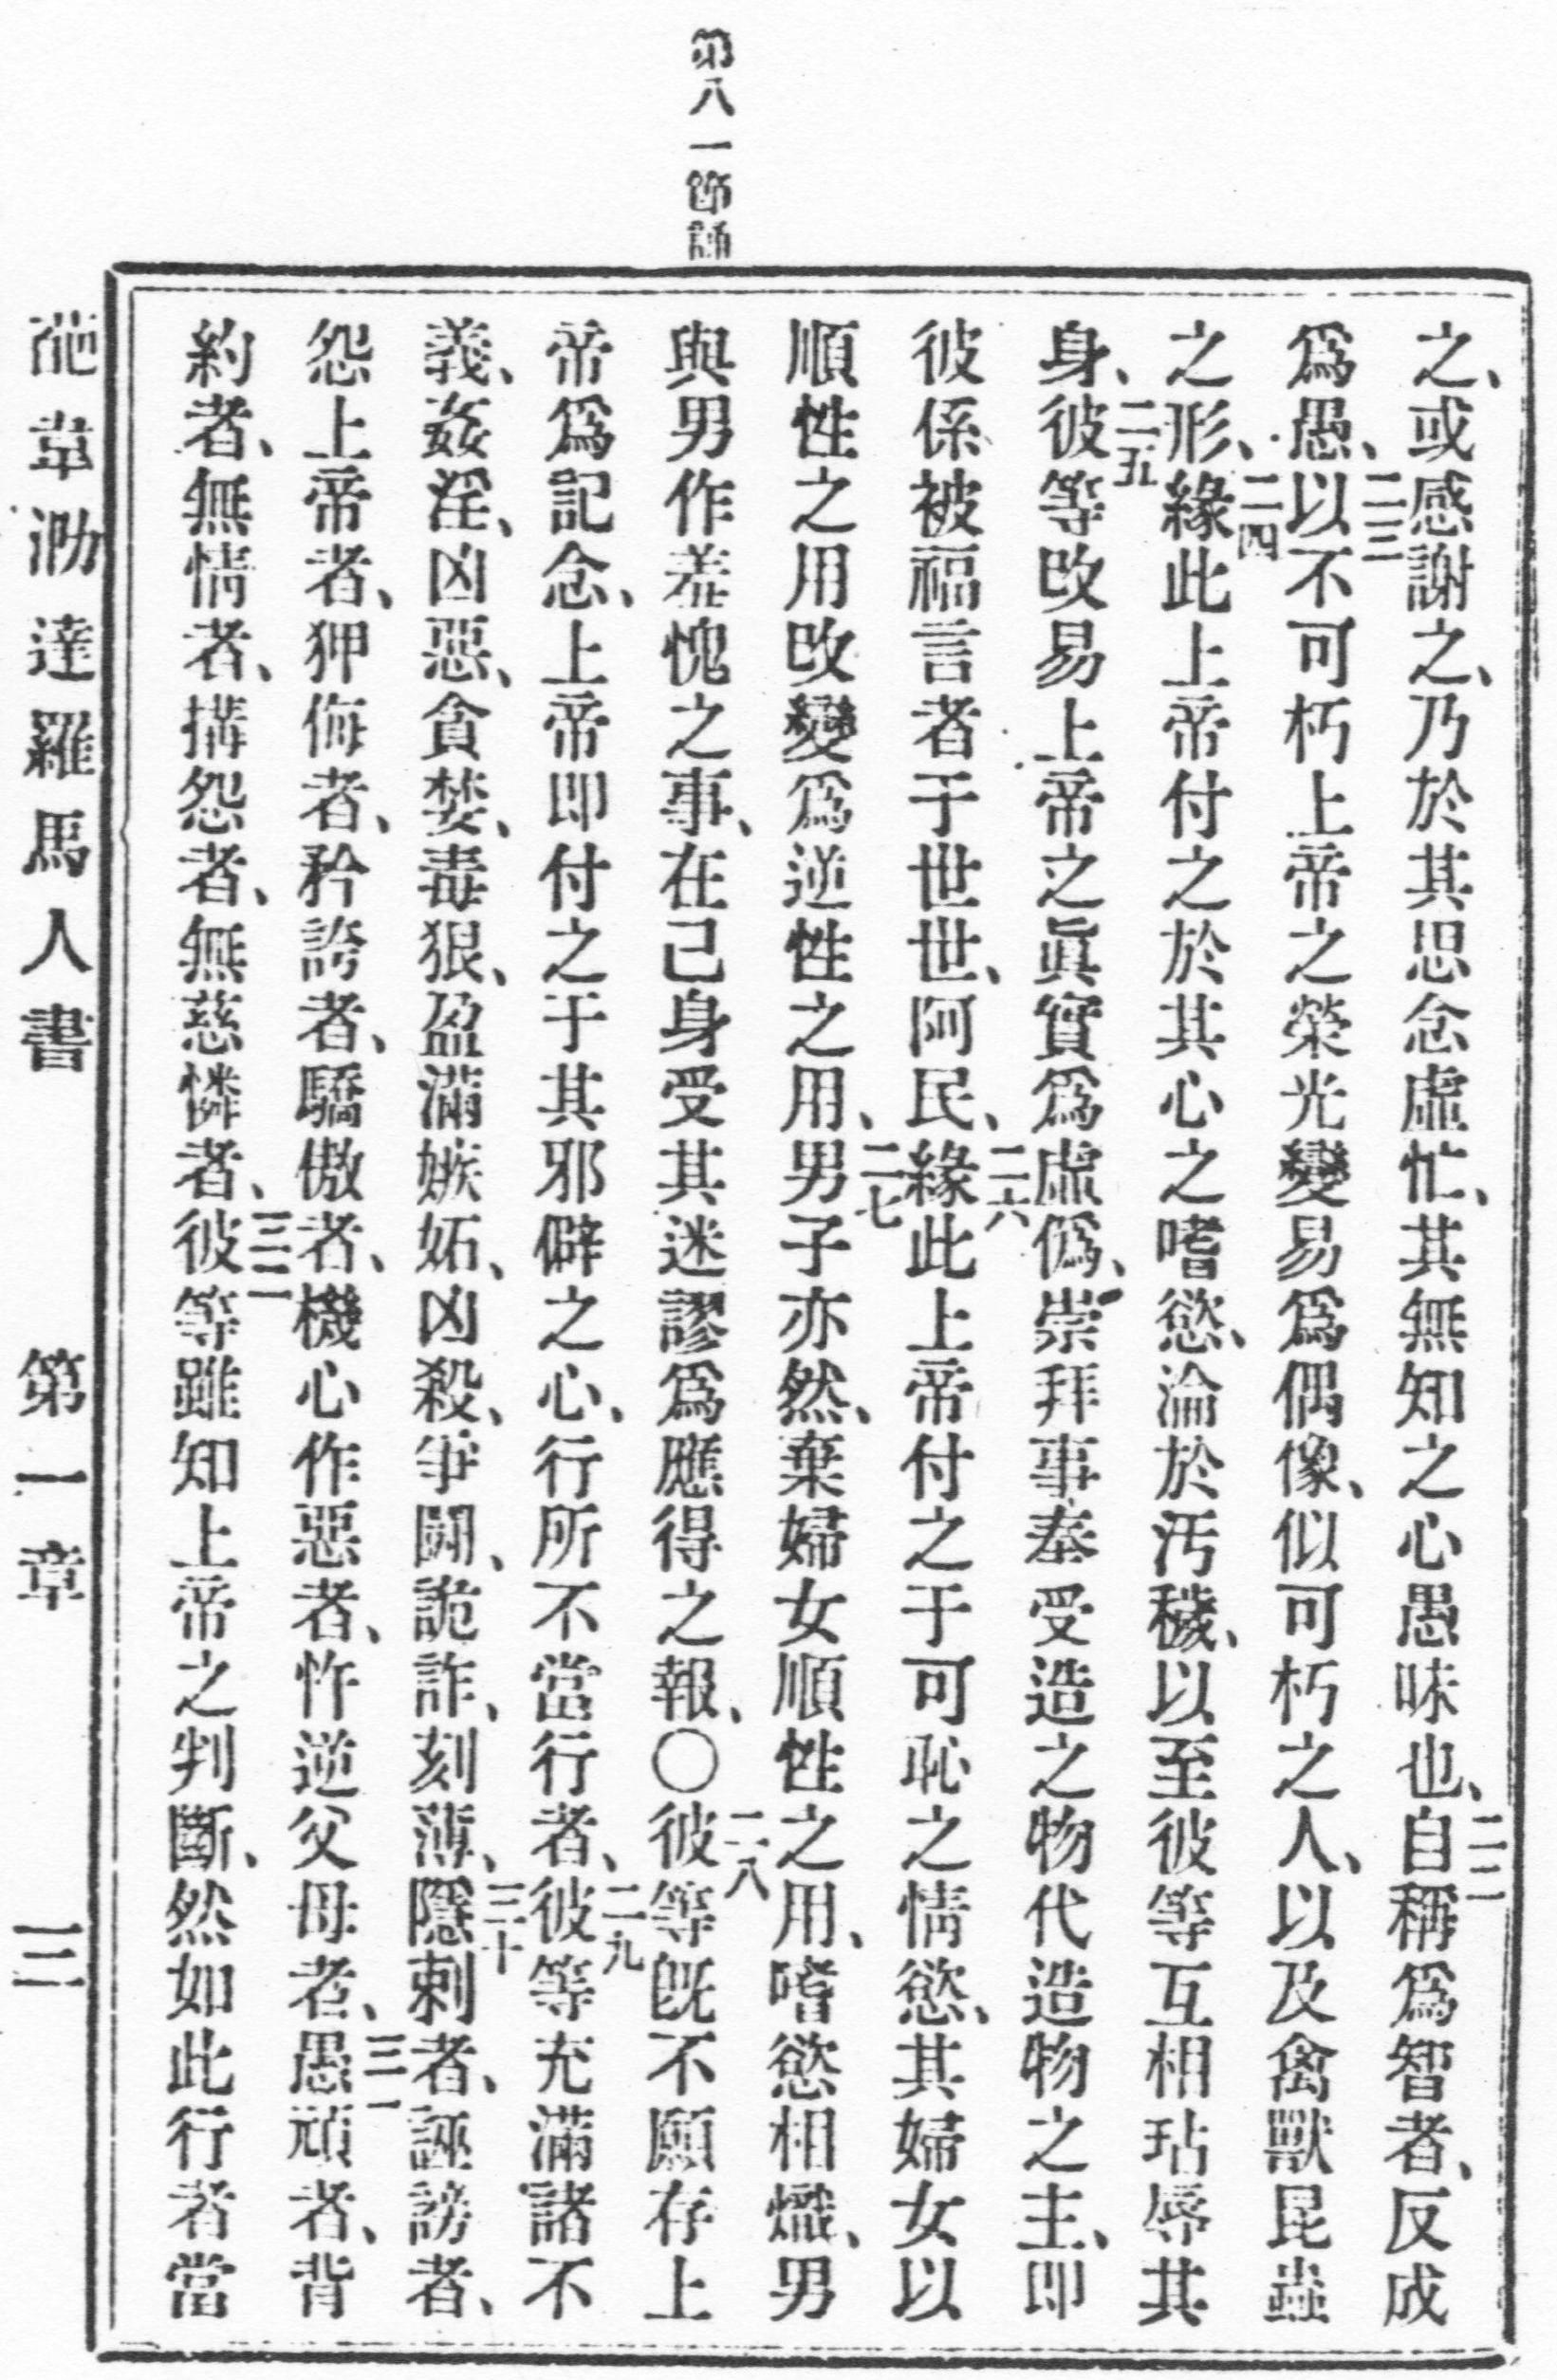 第八一節誦
之、或感謝之、乃於其思念虛忙、其無知之心愚昧也、二二自稱爲智者、反成
爲愚、二三以不可朽上帝之榮光變易爲偶像、似可朽之人、以及禽獸昆蟲
之形、二四緣此上帝付之於其心之嗜慾、淪於汚穢、以至彼等互相玷辱其
身、二五彼等改易上帝之眞實爲虛僞、崇拜事奉受造之物代造物之主、即
彼係被福言者于世世、阿民、二六緣此上帝付之于可恥之情慾、其婦女以
順性之用改變爲逆性之用、二七男子亦然、棄婦女順性之用、嗜慾相熾、男
與男作羞愧之事、在己身受其迷謬爲應得之報、〇二八彼等旣不願存上
帝爲記念、上帝即付之于其邪僻之心、行所不當行者、二九彼等充滿諸不
義、姦淫、凶惡、貪婪、毒狠、盈滿嫉妬、凶殺、爭鬭、詭詐、刻薄、三十隱刺者、誣謗者、
怨上帝者、狎侮者、矜誇者、驕傲者、機心作惡者、忤逆父母者、三一愚頑者、背
約者、無情者、搆怨者、無慈憐者、三二彼等雖知上帝之判斷、然如此行者當
葩韋泐達羅馬人書 第一章 三